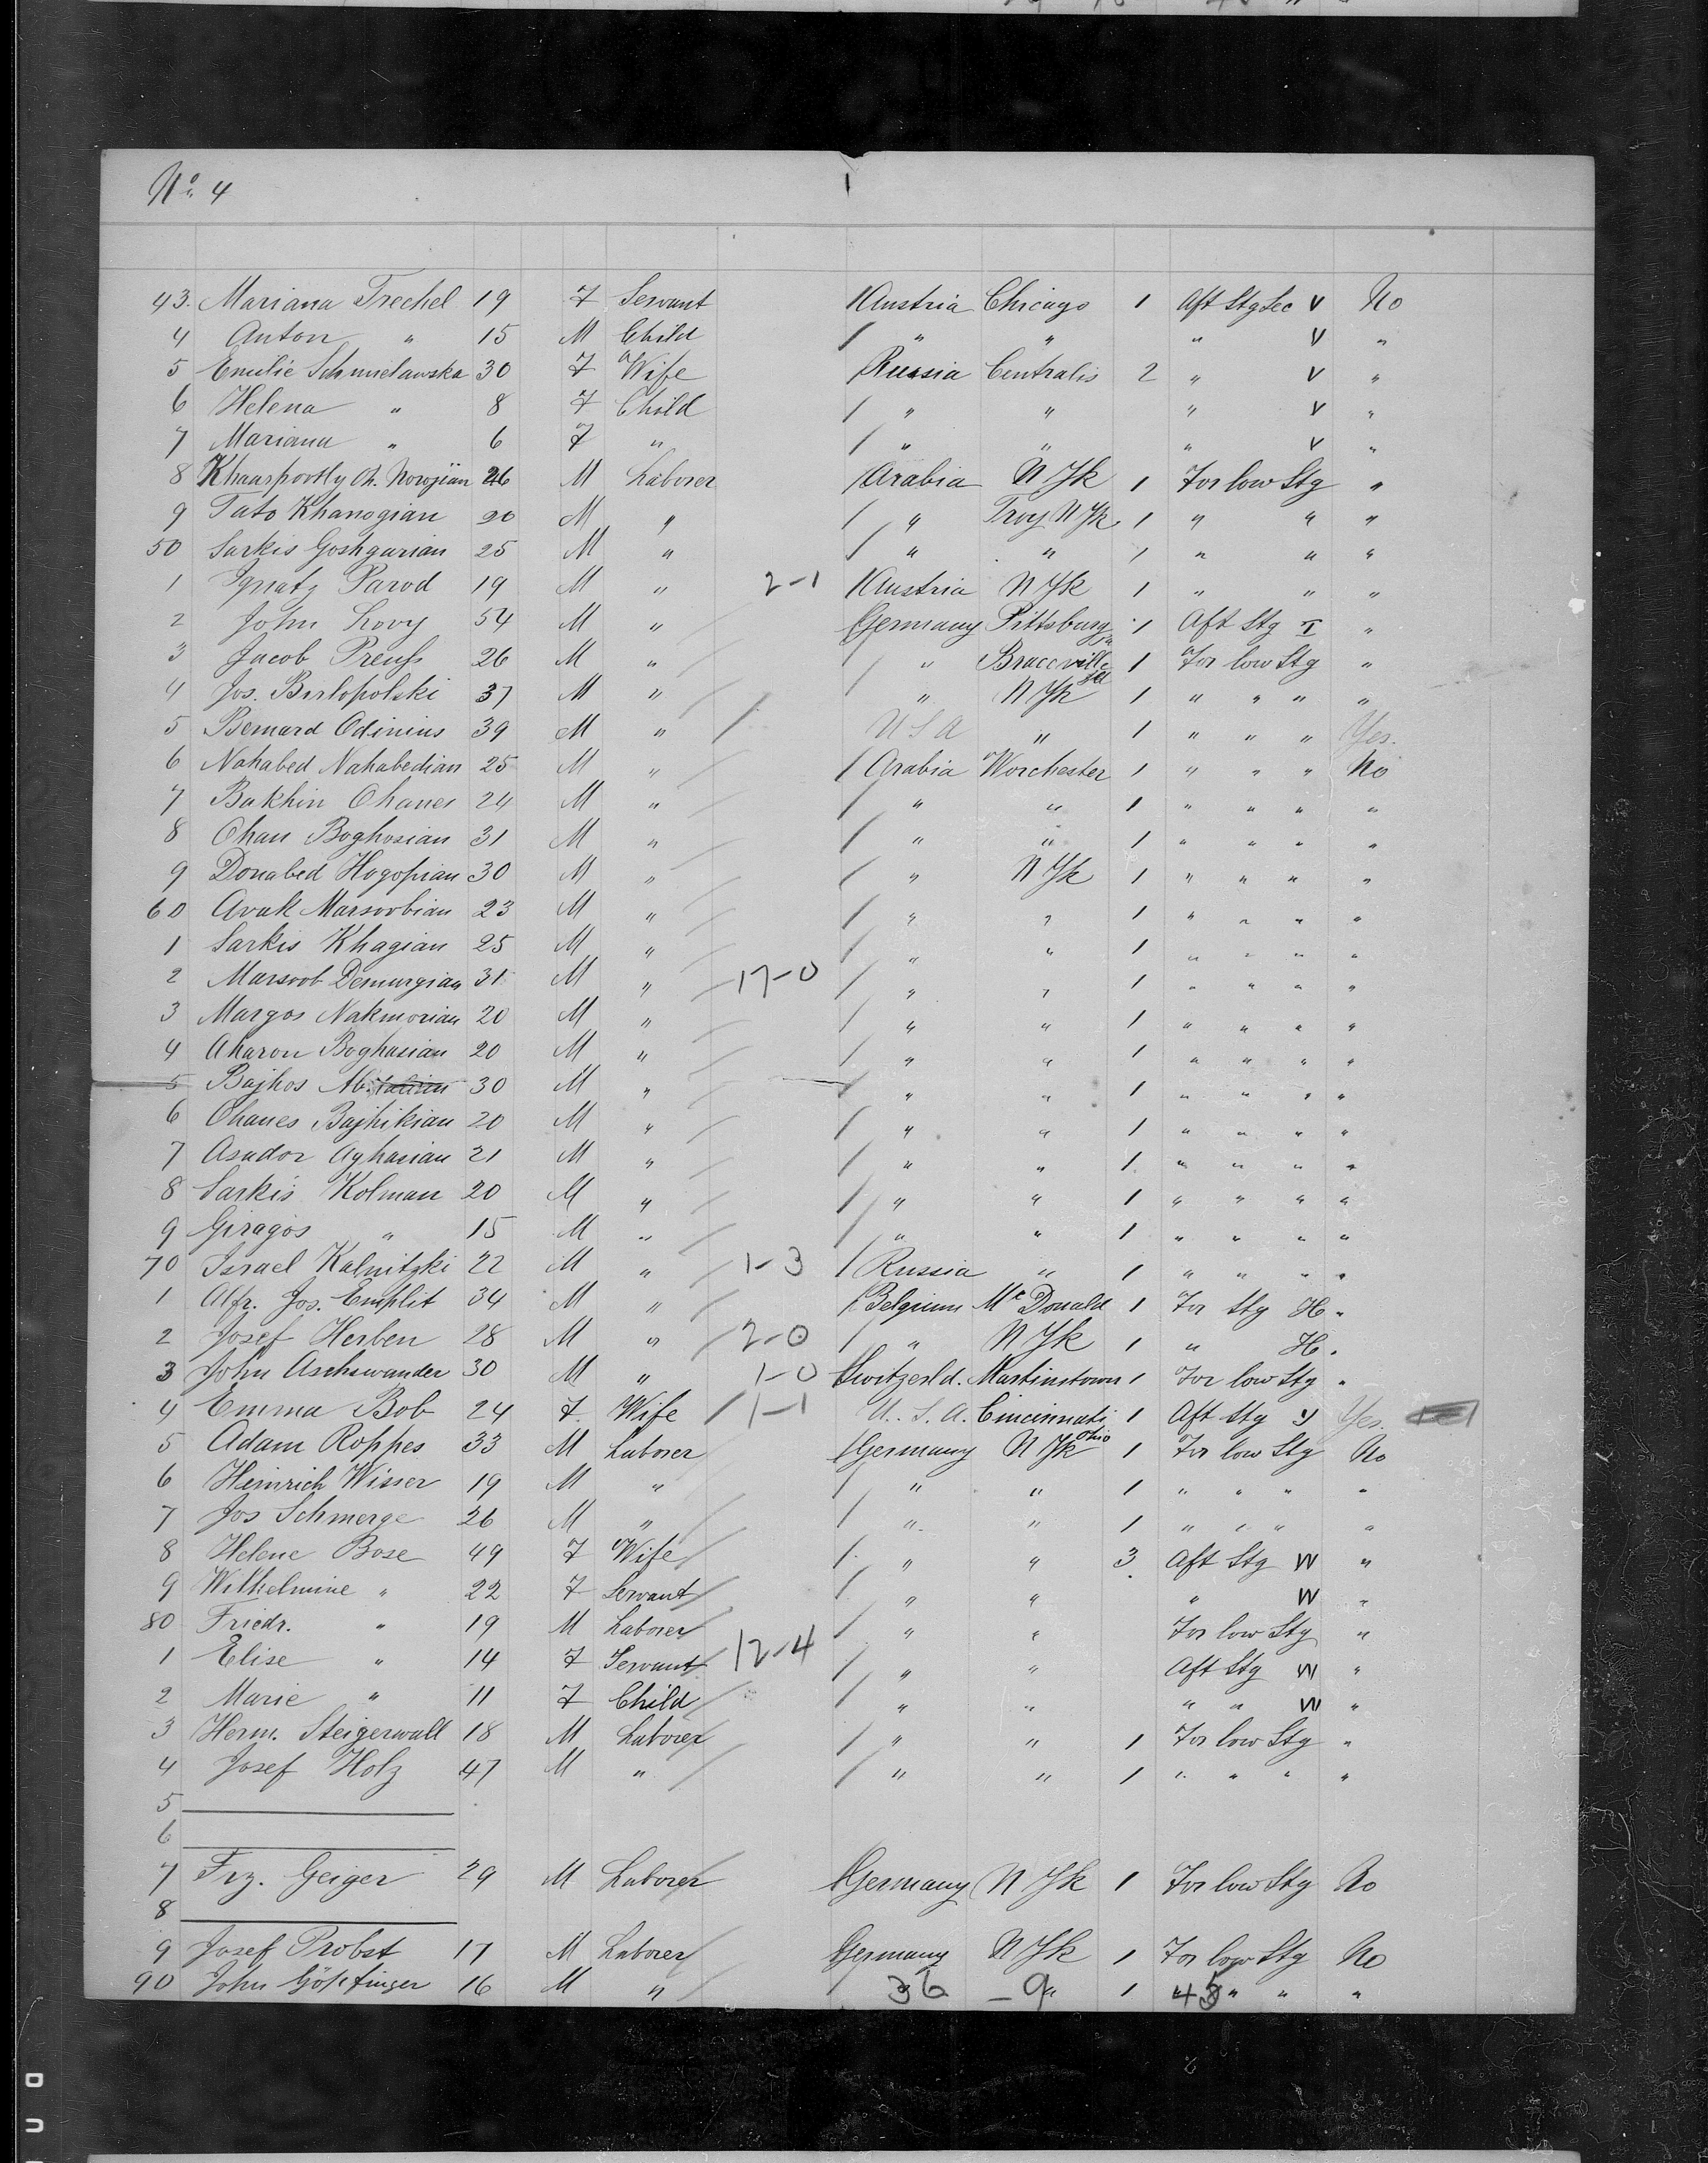 No. 4
43. Mariana Trechel 19 F Servant / Austria Chicago 1 Aft Stg Sec V No
4 Anton " 15 M Child / " " " V "
5 Emilie Schmielawska 30 F Wife / Russia Centralis 2 " V "
6 Helena " 8 F Child / " " " V "
7 Mariana " 6 F " / " " " V "
8 Khaarpootly Oh. Norojian 26 M Laborer / Arabia N Yk 1 For low Stg "
9 Tato Khanogian 20 M " / " Troy N Yk 1 " " "
50 Sarkis Goshgarian 25 M " / " " 1 " " "
1 Ignatz Parod 19 M " 2-1 / Austria N Yk 1 " " "
2 John Lovy 54 M " / Germany Pittsburg 1 Aft Stg I "
3 Jacob Preuß 26 M " / " Braceville Ill 1 For low Stg "
4 Jos. Birlopolski 37 M " / " N Yk 1 " " " "
5 Bernard Odinius 39 M " / U S A " 1 " " " Yes.
6 Nahabed Nahabedian 25 M " / Arabia Worchester 1 " " " No
7 Bakhin Ohanes 24 M " / " " 1 " " " "
8 Ohan Boghosian 31 M " / " " 1 " " " "
9 Donabed Hogopian 30 M " / " N Yk 1 " " " "
60 Avak Marsoobian 23 M " / " " 1 " " " "
1 Sarkis Khagian 25 M " / " " 1 " " " "
2 Marsoob Demurgian 31 M " 17-0 / " " 1 " " " "
3 Margos Nakmorian 20 M " / " " 1 " " " "
4 Aharon Boghasian 20 M " / " " 1 " " " "
5 Bajhos 30 M " / " " 1 " " " "
6 Ohanes Bajhikian 20 M " / " " 1 " " " "
7 Asador Aghasian 21 M " / " " 1 " " " "
8 Sarkis Kolman 20 M " / " " 1 " " " "
9 Giragos " 15 M " / " " 1 " " " "
70 Israel Kalnitzki 22 M " 1-3 / Russia " 1 " " " "
1 Alfr. Jos. Emplit 34 M " / Belgium Mc Donald 1 For Stg H "
2 Josef Herben 28 M " 2-0 / " N Yk 1 " H "
3 John Aschswander 30 M " 1-0 Switzerld. Martinstown 1 For low Stg "
4 Emma Bob 24 F Wife / 1-1 U. S. A. Cincinnati Ohio 1 Aft Stg Yes.
5 Adam Roppes 33 M Laborer / Germany N Yk 1 For low Stg No
6 Heinrich Wisser 19 M " / " " 1 " " " "
7 Jos Schmerge 26 M " / " " 1 " " " "
8 Helene Bose 49 F Wife / " " 3 Aft Stg W "
9 Wilhelmine " 22 F Servant / " " " W "
80 Friedr. " 19 M Laborer / " " For low Stg "
1 Elise " 14 F Servant 12-4 / " " Aft Stg W "
2 Marie " 11 F Child / " " " " W "
3 Herm. Steigerwall 18 M Laborer / " " 1 For low Stg "
4 Josef Holz 47 M " / " " 1 " " " "
5
6
7 Frz. Geiger 29 M Laborer / Germany N Yk 1 For low Stg No
8
9 Josef Probst 17 M Laborer Germany N Yk 1 For low Stg No
90 John Göpfinger 16 M " 36 - 9 1 45 " " "